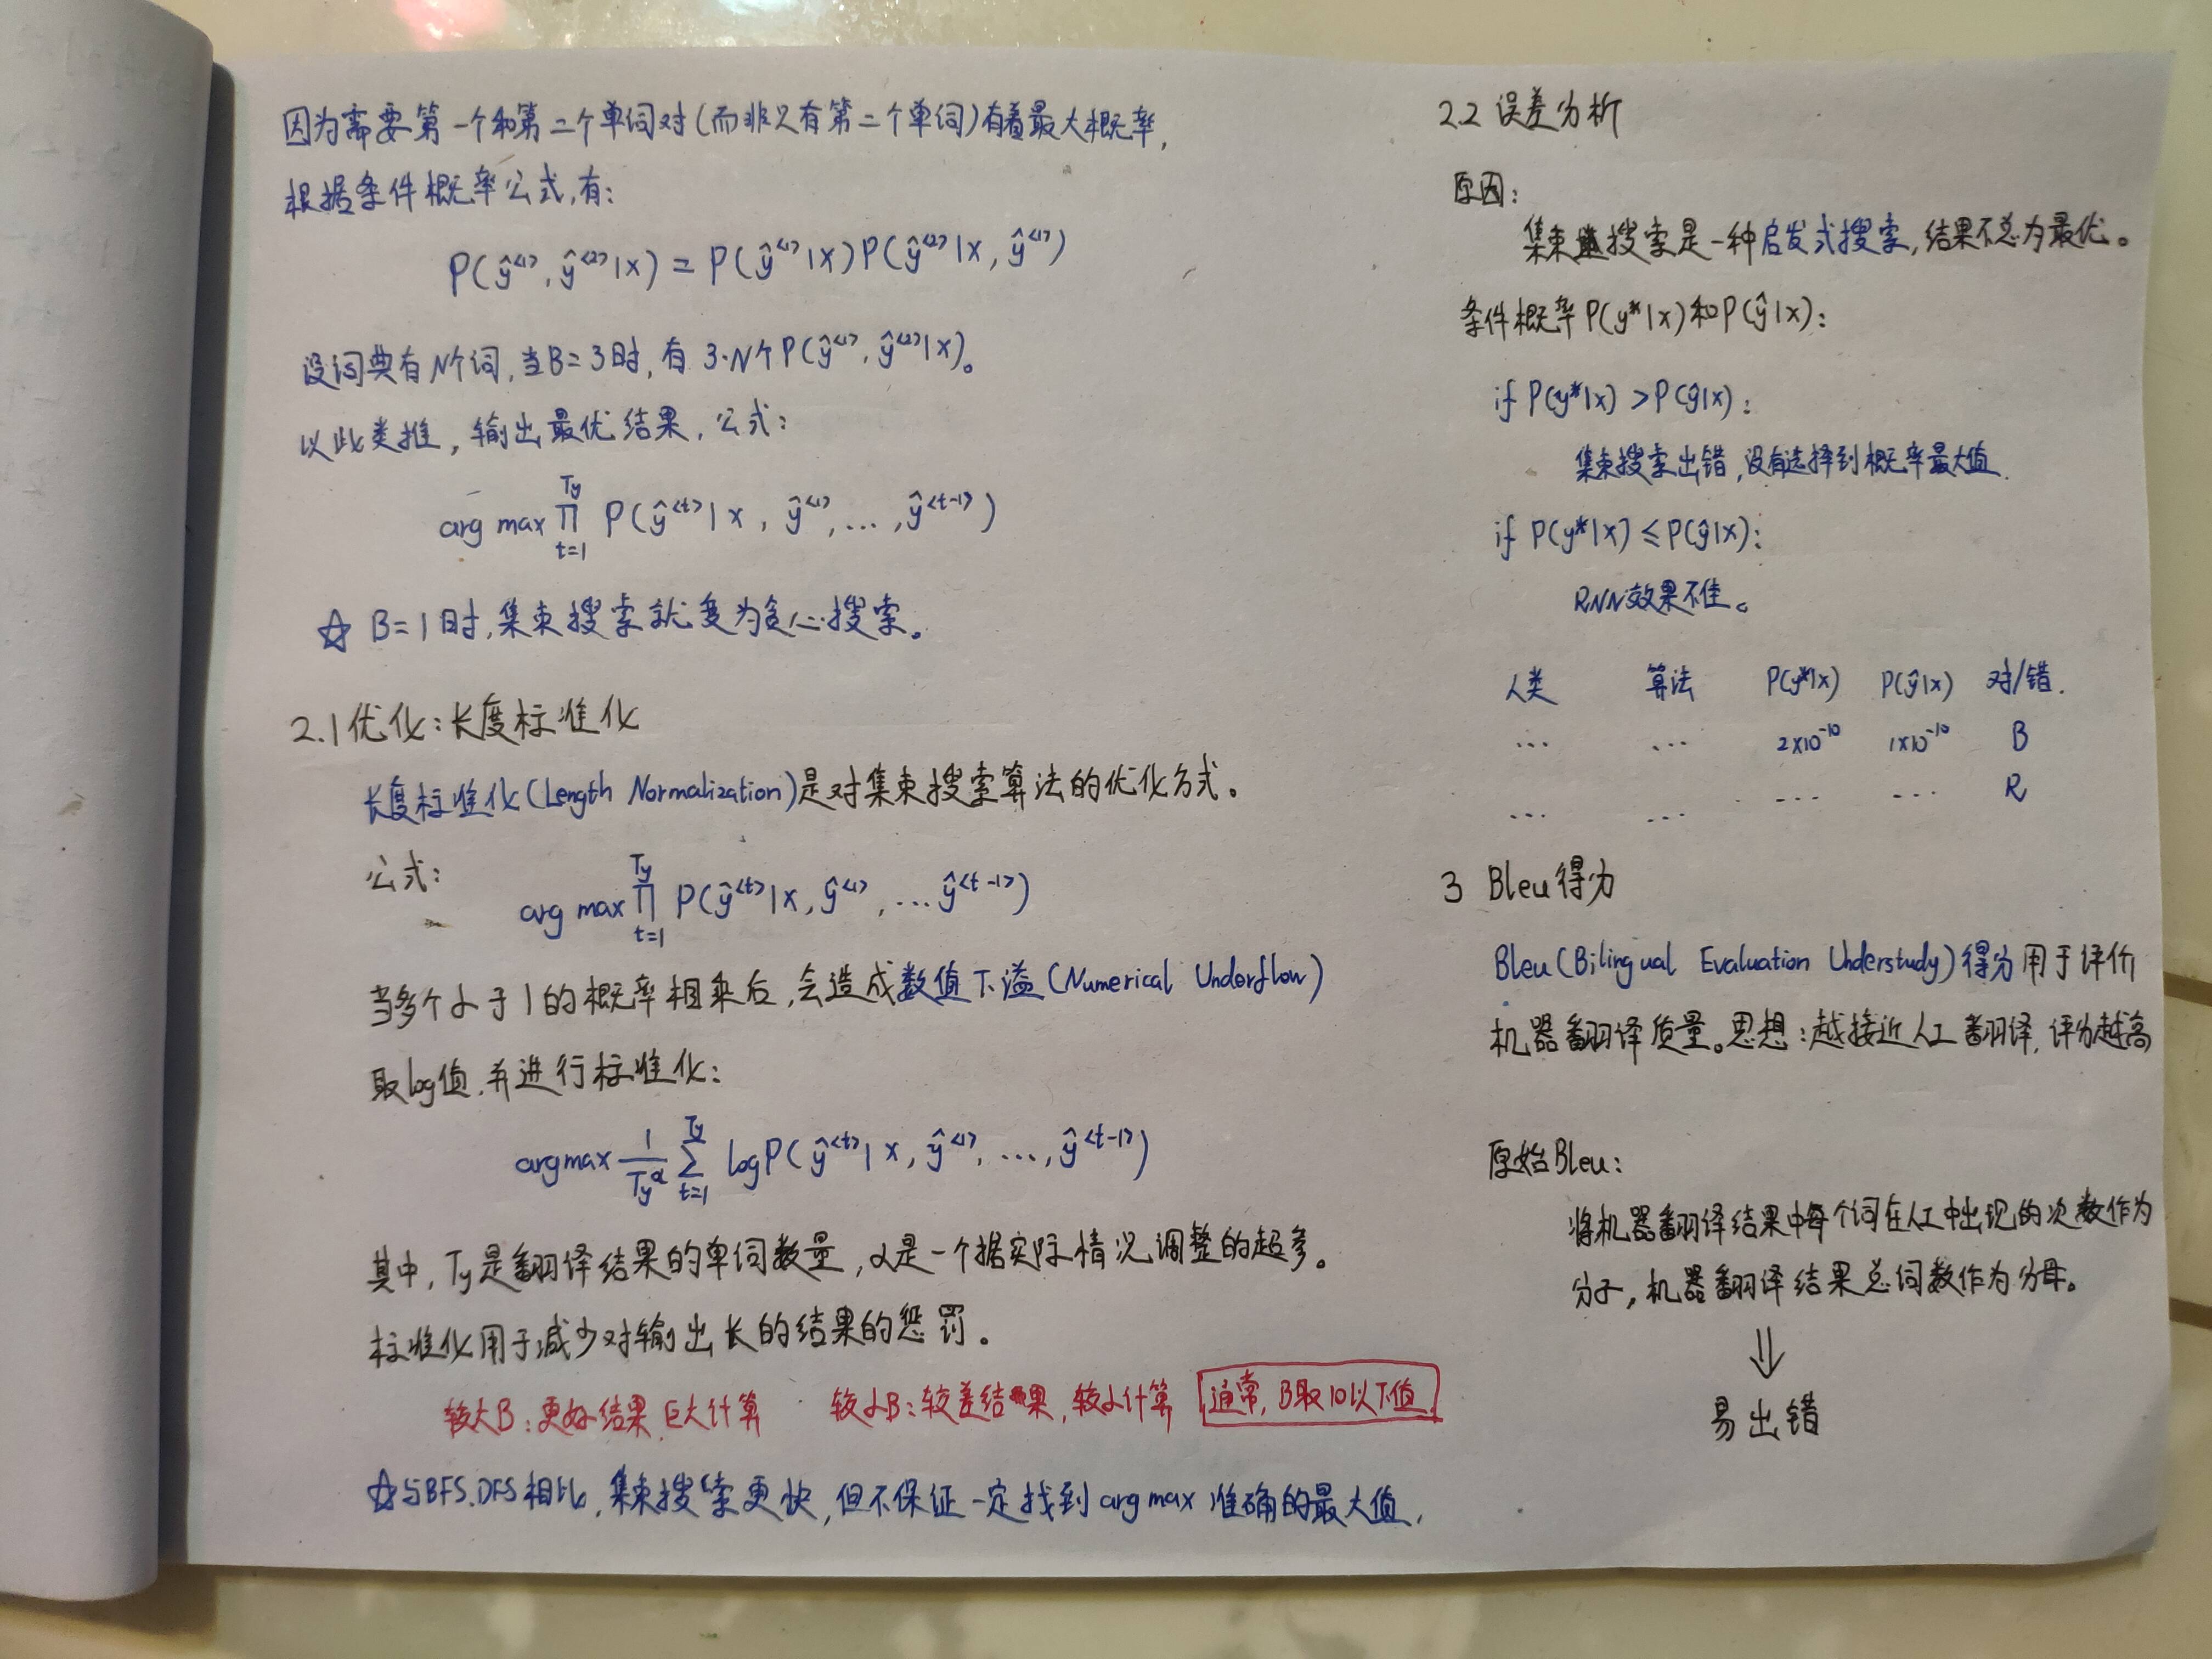 因为需要第一个和第二个单词对(而非只有第二个单词)有着最大概率,
根据条件概率公式,有:
P(ŷ<1>, ŷ<2>|x) = P(ŷ<1>|x)P(ŷ<2>|x, ŷ<1>)
设词典有N个词,当B=3时,有3·N个P(ŷ<1>, ŷ<2>|x)。
以此类推,输出最优结果,公式:
arg max ∏_{t=1}^{Ty} P(ŷ<t>|x, ŷ<1>, ..., ŷ<t-1>)
☆ B=1时,集束搜索就变为贪心搜索。
2.1优化:长度标准化
长度标准化(Length Normalization)是对集束搜索算法的优化方式。
公式:
arg max ∏_{t=1}^{Ty} P(ŷ<t>|x, ŷ<1>, ... ŷ<t-1>)
当多个小于1的概率相乘后,会造成数值下溢(Numerical Underflow)
取log值,并进行标准化:
arg max 1/Ty^α ∑_{t=1}^{Ty} logP(ŷ<t>|x, ŷ<1>, ..., ŷ<t-1>)
其中,Ty是翻译结果的单词数量,α是一个据实际情况调整的超参。
标准化用于减少对输出长的结果的惩罚。
较大B:更好结果,巨大计算 较小B:较差结果,较小计算 通常,B取10以下值
☆与BFS.DFS相比,集束搜索更快,但不保证一定找到arg max准确的最大值,
2.2 误差分析
原因:
集束搜索是一种启发式搜索,结果不总为最优。
条件概率P(y*|x)和P(ŷ|x):
if P(y*|x) > P(ŷ|x):
集束搜索出错,没有选择到概率最大值.
if P(y*|x) ≤ P(ŷ|x):
RNN效果不佳。
人类 算法 P(y*|x) P(ŷ|x) 对/错.
... ... 2×10^-10 1×10^-10 B
... ... ... ... R
3 Bleu得分
Bleu(Bilingual Evaluation Understudy)得分用于评价
机器翻译质量。思想:越接近人工翻译,评分越高
原始Bleu:
将机器翻译结果中每个词在人工中出现的次数作为
分子,机器翻译结果总词数作为分母。
⇓
易出错